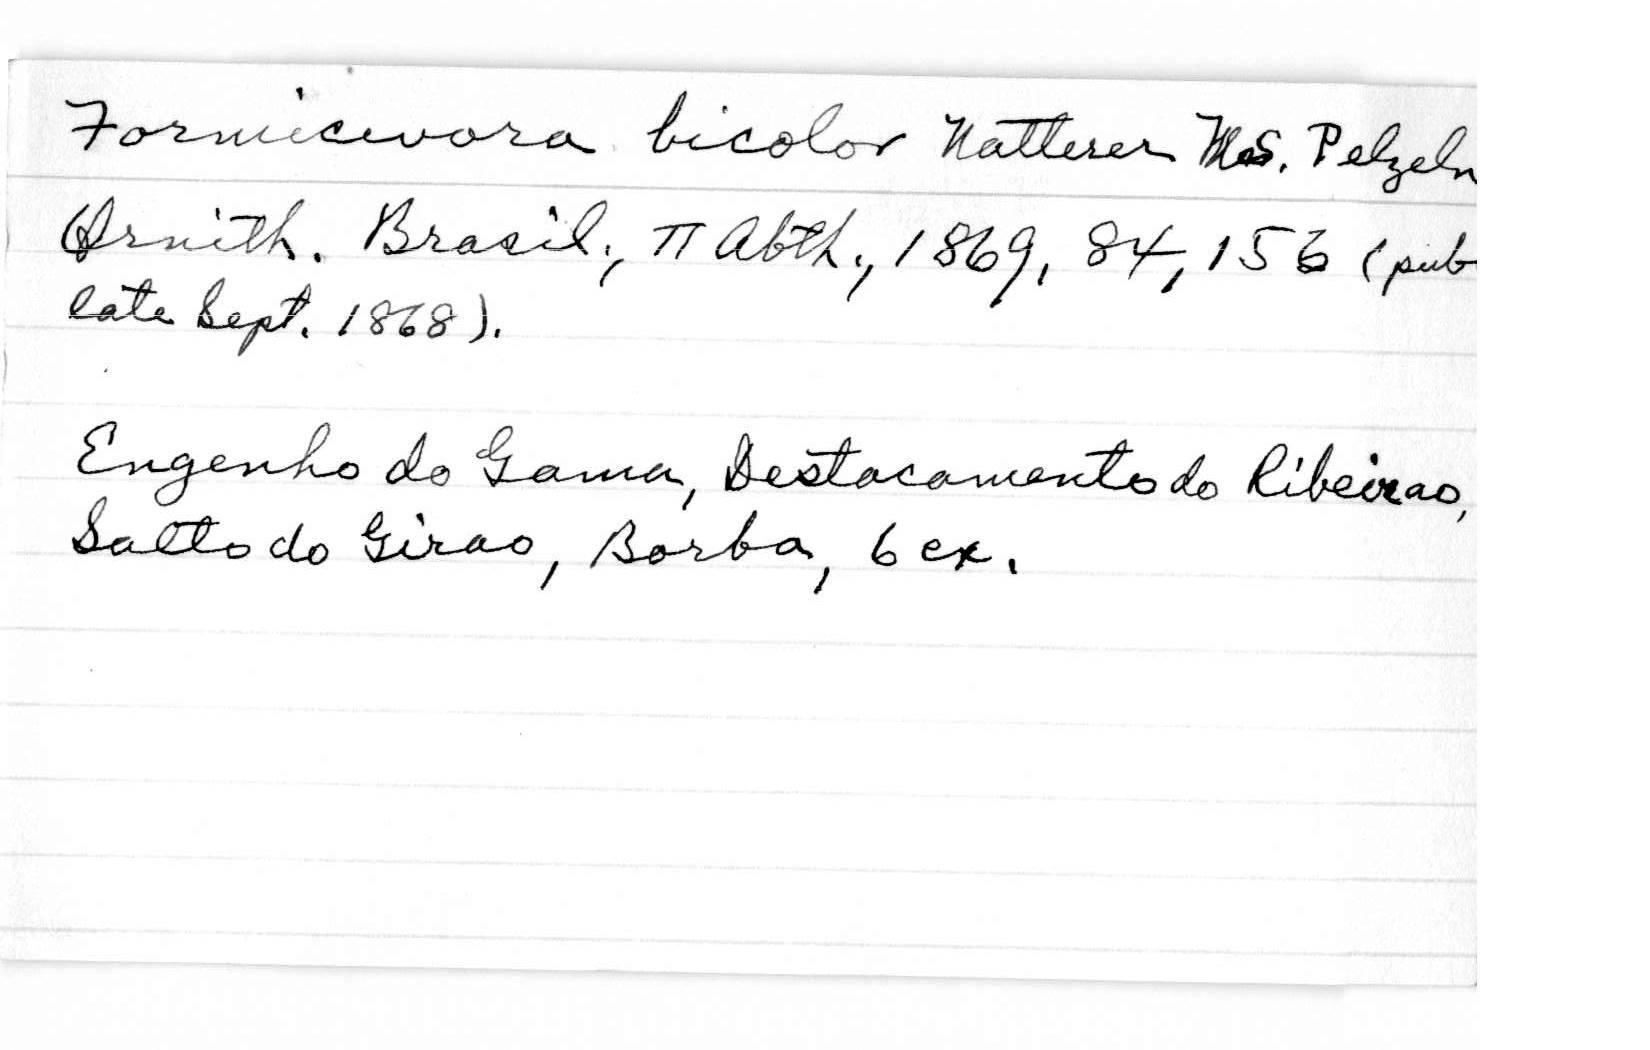 Formicivora bicolor Natterer Ms. Pelzeln
Ornith. Brasil., II Abth., 1869, 84, 156 (pub
late Sept. 1868).
Engenho do Gama, Destacamento do Ribeirao,
Salto do Girao, Borba, 6 ex.